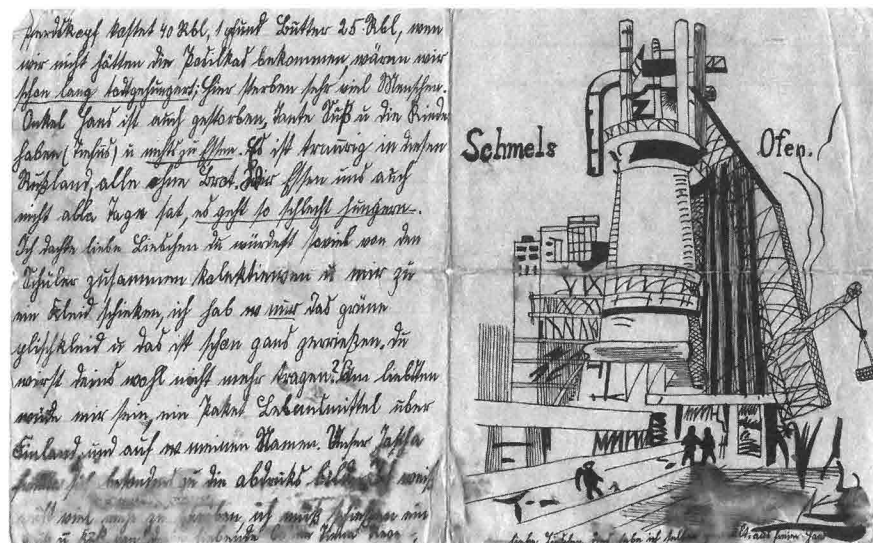 Pferdskopf kostet 40 Rbl, 1 Pfund Butter 25 Rbl, wen
wir nicht hätten die Posilkas bekommen, wären wir
schon lang todtgehungert; hier sterben sehr viel Menschen.
Onkel Hans ist auch gestorben, Tante Suß u die Kinder
haben (Tiefus) u nichts zu Essen. Es ist traurig in diesen
Rußland, alle ohne Brot. Wir Essen uns auch
nicht alla Tage sat, es geht so schlecht hungern.
Ich dachte liebe Lieschen du würdest soviel von den
Schüler zusammen kolektiewen u mir zu
ein Kleid schicken, ich hab w nur das grüne
plischkleid u das ist schon gans zerrießen. Du
wirst deins wohl nicht mehr tragen? Am liebsten
würde mir sein, ein Paket Lebensmittel über
Finland, und auf w meinen Namen. Unser Jascha
sich besonders zu die abdruks bilder weis
viel ich muß schließen ein
Schmels Ofen.
liebe das habe ich selber aus freier